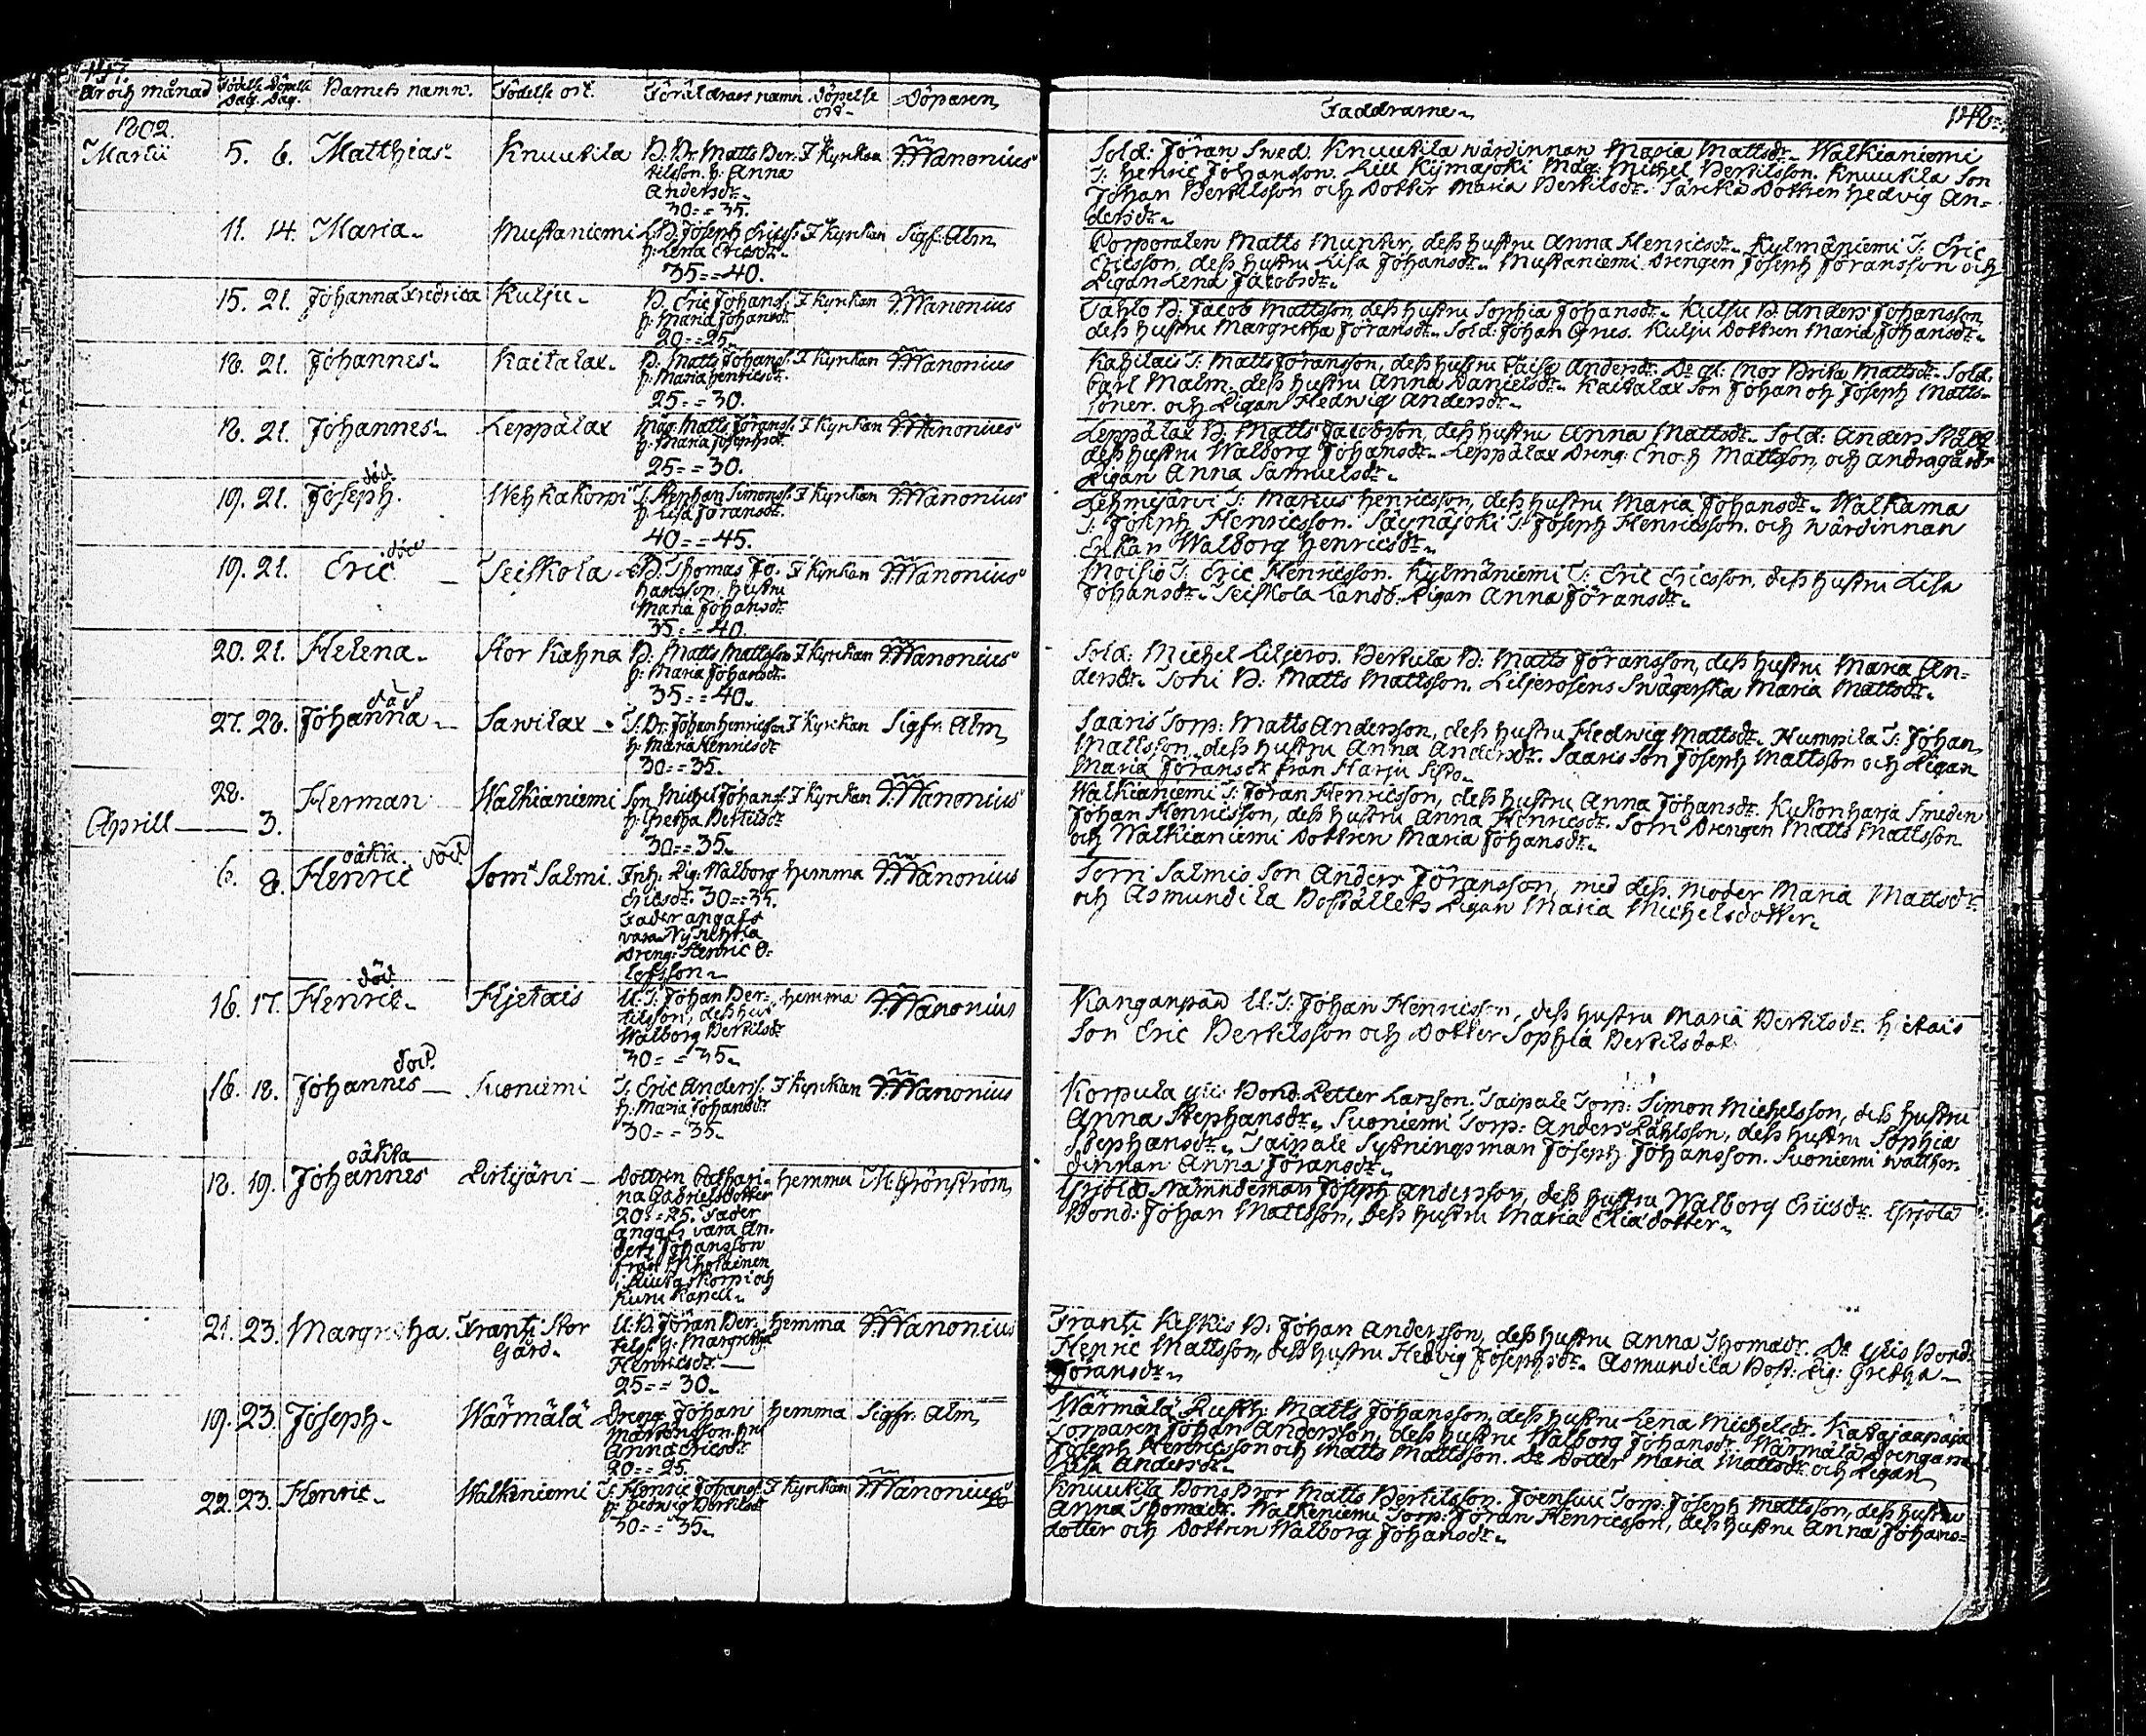 147.
År och månad Födelse Dag. Döpelse Dag. Barnets namn. Födelse ort. Föräldrars namn. Döpelse ort. Döparen
1802.
Martii 5. 6. Matthias Knuutila B. Br. Matts Ber- I Kyrkan Wanonius
tilsson. h: Anna
Andersdr.
30 = = 35.
11. 14. Maria. Mustaniemi B. Joseph Ericss. I Kyrkan Sigfr: Alm
h: Lena Ericsdr.
35 = = 40.
15. 21. Johanna Fredrica Kulju B. Eric Johanss. I Kyrkan Wanonius
h: Maria Johansdr.
20 = = 25.
18. 21. Johannes Kaitalax B. Matts Johanss. I Kyrkan Wanonius
h: Maria Henricsdr.
25 = = 30.
18. 21. Johannes Leppälax Måg. Matts Jöranss. I Kyrkan Wanonius
h: Maria Josephsdr.
25 = = 30.
död
19. 21. Joseph. Wehkakorpi T. Stephan Simonss. I Kyrkan Wanonius
h: Lisa Jöransdr.
40 = = 45.
död
19. 21. Eric Seiskola B. Thomas Jo- I Kyrkan Wanonius
hansson. hustru
Maria Johansdr.
35 = = 40.
20. 21. Helena Stor Kahna B: Matts Mattsson I Kyrkan Wanonius
h: Maria Johansdr.
35 = = 40.
död
27. 28. Johanna Sawilax T. Br. Johan Henricsson I Kyrkan Sigfr. Alm
h: Maria Henricsdr.
30 = = 35.
28. Herman Walkianiemi Son Michel Johanss. I Kyrkan Wanonius
Aprill 3. h: Gretha Bertilsdr
30 = = 35.
oäkta död
6. 8. Henric Sorri Salmi. Inh. Pig. Walborg hemma Wanonius
Ericsdr. 30 = = 35.
Fader angafs
vara
Dreng: Henric O-
lofsson
död
16. 17. Henric Hjetais U. T. Johan Ber- hemma Wanonius
tilsson, dess hus
Walborg Bertilsdr
30 = = 35.
död
16. 18. Johannes Suoniemi T. Eric Anderss. I Kyrkan Wanonius
h: Maria Johansdr
30 = = 35.
oäkta
18. 19. Johannes Pertijärvi Dottren Cathari- hemma M: Grönström
na Gabrielsdotter
20 = = 25. Fader
angafs vara An-
ders Johansson
från
och
Kapell
21. 23. Margretha Frantsi Stor U. B. Jöran Ber- hemma Wanonius
Gård. telss. h: Margretha
Henricsdr.
25 = = 30.
19. 23. Joseph Wärmälä Dreng Johan hemma Sigfr. Alm
Anna Ericsdr
20 = = 25.
22. 23. Henric Walkeniemi T. Henric Johanss. I Kyrkan Wanonius
h: Hedwig Bertilsdr
30 = = 35.
Faddrarne 148.
Sold: Jöran Swed. Knuutila wärdinnan Maria Mattsdr. Walkianiemi
T. Henric Johansson. Lill Kijmajoki Måg. Michel Bertilsson. Knuutila Son
Johan Bertilsson och Dotter Maria Bertilsdr. Dottren Hedvig An-
dersdr.
Corporalen Matts Munter, dess hustru Anna Henricsdr. Kylmäniemi T. Eric
Ericsson, dess hustru Lisa Johansdr. Mustaniemi Drengen Joseph Jöransson och
Pigan Lena Jacobsdr.
B. Jacob Mattsson, dess hustru Sophia Johansdr. Kulju B. Anders Johansson,
dess hustru Margretha Jöransdr. Sold: Johan Kulju Dottren Maria Johansdr.
T. Matts Jöransson, dess hustru Caisa Andersdr. Mor Brita Mattsdr. Sold.
Carl Malm, dess hustru Anna Danielsdr. Kaitalax Son Johan och Joseph Matts-
söner. och Pigan Hedwig Andersdr.
Leppälax B. Matts Jacobsson, dess hustru Anna Mattsdr. Sold: Anders
dess hustru Walborg Johansdr. Leppälax Dreng. Enoch Mattsson, och
Pigan Anna Samuelsdr.
Lehmejärvi T. Marcus Henricsson, dess hustru Maria Johansdr. Walkama
T. Joseph Henricsson. Säynäjoki T. Joseph Henricsson. och wärdinnan
Enkan Walborg Henricsdr.
Moisio T. Eric Henricsson. Kylmäniemi T. Eric Ericsson, dess hustru Lisa
Johansdr. Seiskola Landb. Pigan Anna Jöransdr.
Sold: Michel Liljeros. Bertula B: Matts Jöransson, dess hustru Maria An-
dersdr. Tohi B: Matts Mattsson. Liljerosens Swägerska Maria Mattsdr.
Saaris Torp: Matts Andersson, dess hustru Hedwig Mattsdr. T. Johan
Mattsson, dess hustru Anna Andersdr. Saaris Son Joseph Mattsson och Pigan
Maria Jöransdr från Harju
Walkianiemi T. Jöran Henricsson, dess hustru Anna Johansdr. Kukonharja Smeden
Johan Henricsson, dess hustru Anna Henricsdr. Sorri Drengen Matts Mattsson
och Walkianiemi Dottren Maria Johansdr.
Sorri Salmis Son Anders Jöransson, med dess Moder Maria Mattsdr
och Asmundila Boställets Pigan Maria Michelsdotter
Kanganpää U. T. Johan Henricsson, dess hustru Maria Bertilsdr. Hietais
Son Eric Bertelsson och Dotter Sophia Bertilsdot:
Korpula Bond. Petter Larsson. Taipale Torp: Simon Michelsson, dess hustru
Anna Stephansdr. Suoniemi Torp: Anders Påhlsson, dess hustru Sophia
Stephansdr. Taipale Sytningsman Joseph Johansson. Suoniemi
Anna Jöransdr.
Yrjölä Nämndeman Joseph Andersson, dess hustru Walborg Ericsdr. Yrjölä
Bond: Johan Mattsson, dess hustru Maria Eliædotter
Frantsi Keskis B: Johan Andersson, dess hustru Anna Thomædr. Do Ylis Bond:
Henric Mattsson, dess hustru Hedvig Josephsdr. Asmundila Bost: Pig: Gretha
Jöransdr.
Wärmälä Rusth: Matts Johansson, dess hustru Lena Michelsdr. Katajaapaja
Torparen Johan Andersson, dess hustru Walborg Johansdr. Wärmälä Drengarne
Joseph Henricsson och Matts Mattsson. Do Dotter Maria Mattsdr och Pigan
Lisa Andersdr.
Knuutila Bonsbror Matts Bertilsson. Joensuu Torp: Joseph Mattsson, dess hustru
Anna Thomædr. Walkeniemi Torp: Jöran Henricsson, dess hustru Anna Johans-
dotter och Dottren Walborg Johansdr.